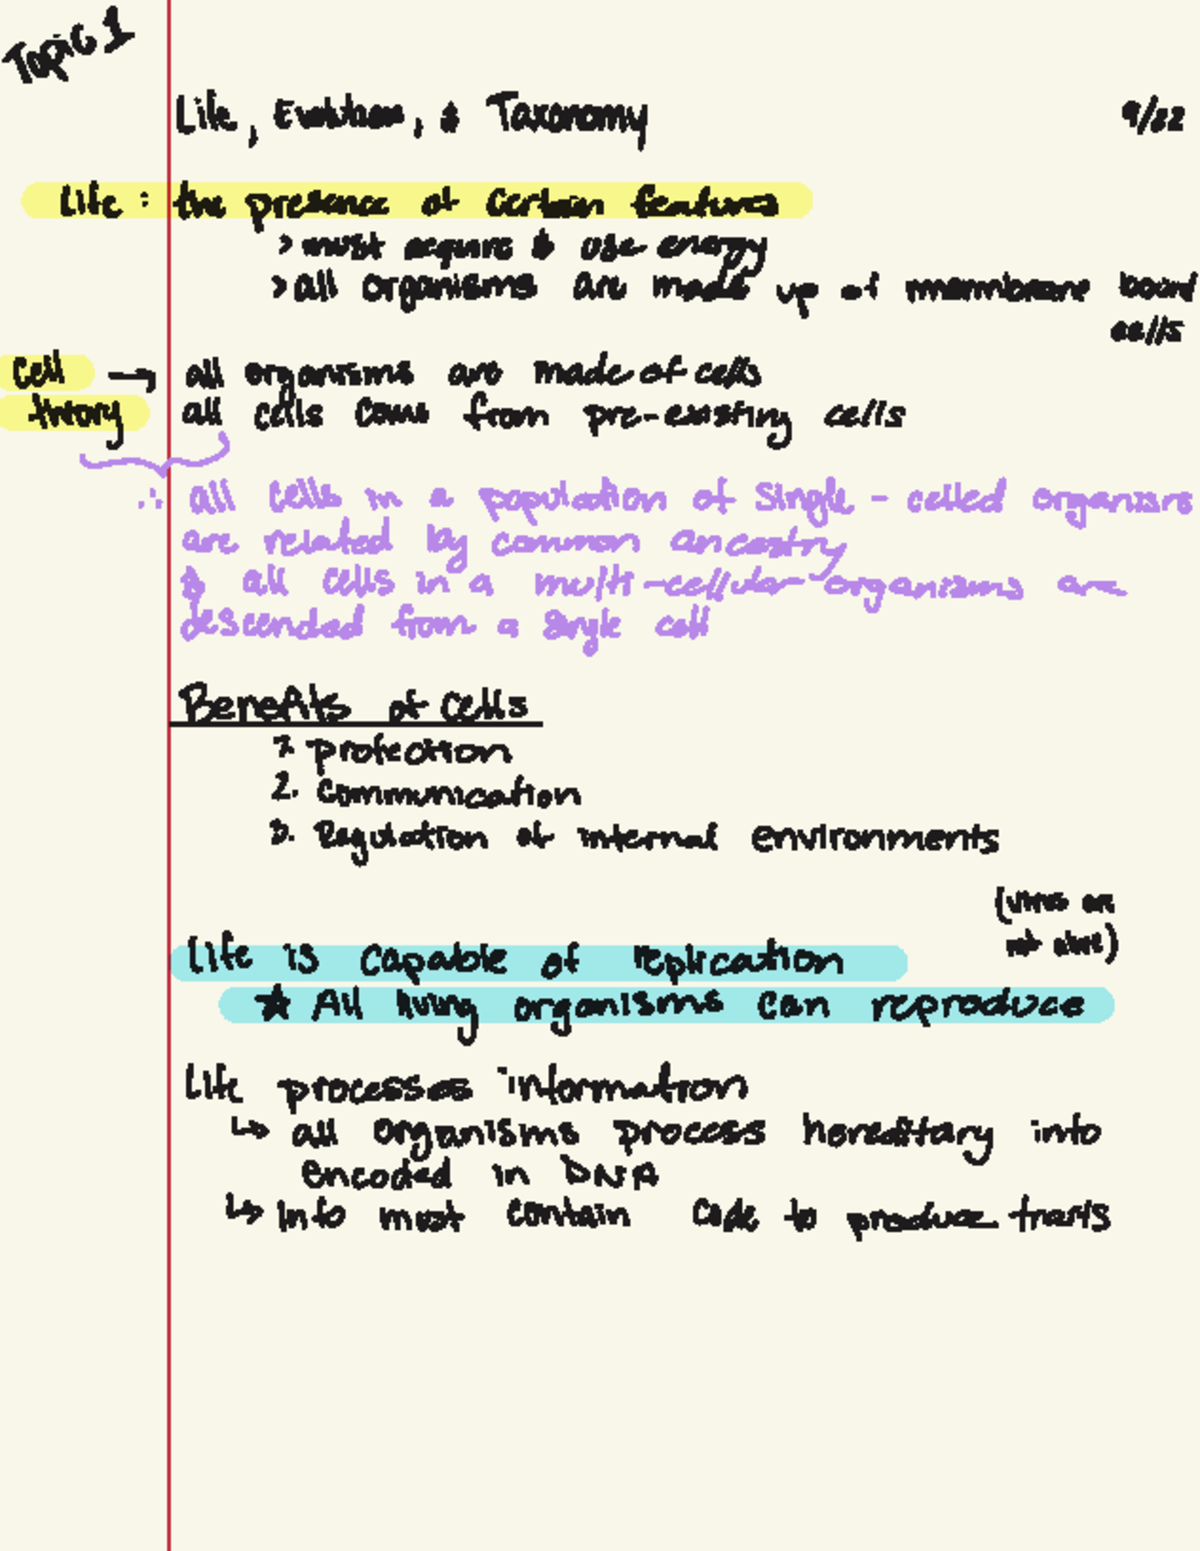 Topic 1
Life, Evolution, & Taxonomy
Life : the presence of certain features
> must acquire & use energy
> all organisms are made up of bound
cells
cell → all organisms are made of cells
theory all cells come from pre-existing cells
∴ all cells in a population of single-celled organisms
are related by common ancestry
& all cells in a multi-cellular organisms are
descended from a single cell
Benefits of cells
1. protection
2. communication
3. Regulation of internal environments
(virus are
not alive)
Life is capable of replication
★ All living organisms can reproduce
Life processes information
↳ all organisms process hereditary into
encoded in DNA
↳ Info must contain code to produce traits